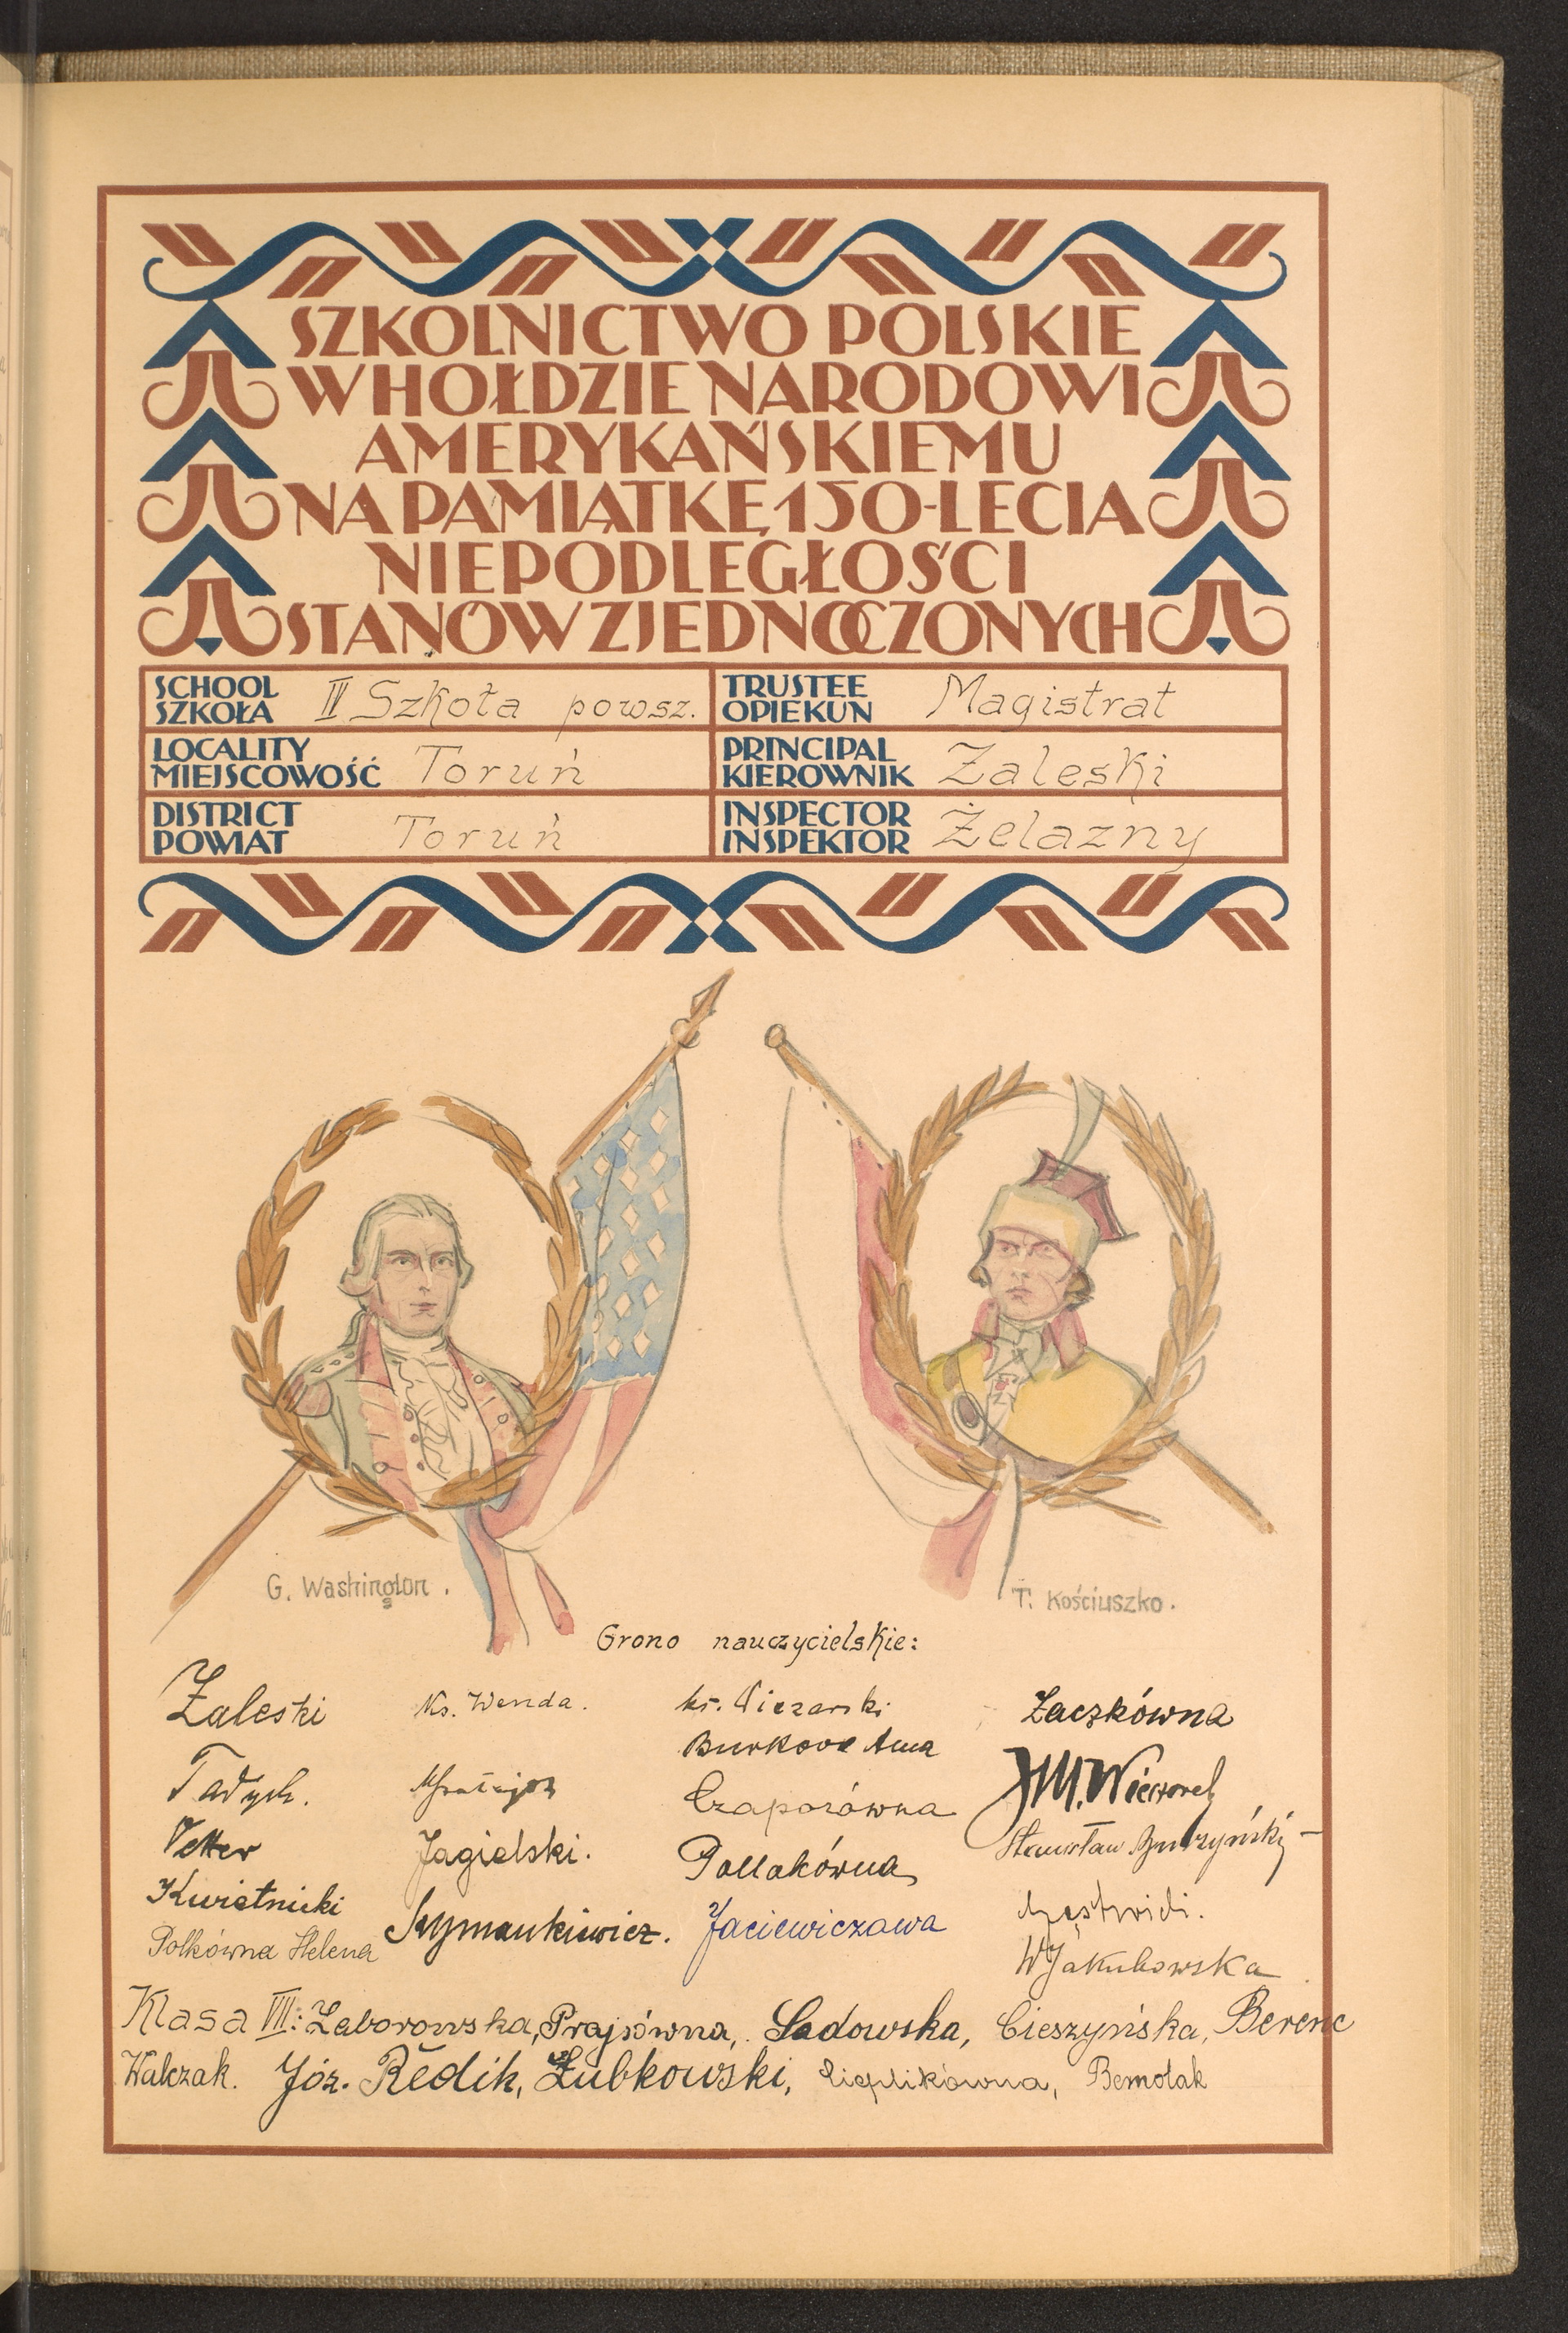 SZKOLNICTWO POLSKIE
W HOŁDZIE NARODOWI
AMERYKAŃSKIEMU
NA PAMIĄTKĘ 150-LECIA
NIEPODLEGŁOŚCI
STANÓW ZJEDNOCZONYCH
SCHOOL
SZKOŁA III Szkoła powsz.
TRUSTEE
OPIEKUN Magistrat
LOCALITY
MIEJSCOWOŚĆ Toruń
PRINCIPAL
KIEROWNIK Zaleski
DISTRICT
POWIAT Toruń
INSPECTOR
INSPEKTOR Żelazny
G. Washington.
T. Kościuszko.
Grono nauczycielskie:
Zaleski
Tadych.
Vetter
Kwietnicki
Polkówna Helena
Ks. Wenda.
Jagielski.
Szymankiewicz.
ks.
Anna
Czaporówna
Pollakówna
Jaciewiczowa
Żaczkówna
Stanisław
WJakubowska
Klasa VII: Zaborowska, Prajsówna, Sadowska, Cieszyńska, Berenc
Walczak. Józ. Redik, Żubkowski, Bemolak